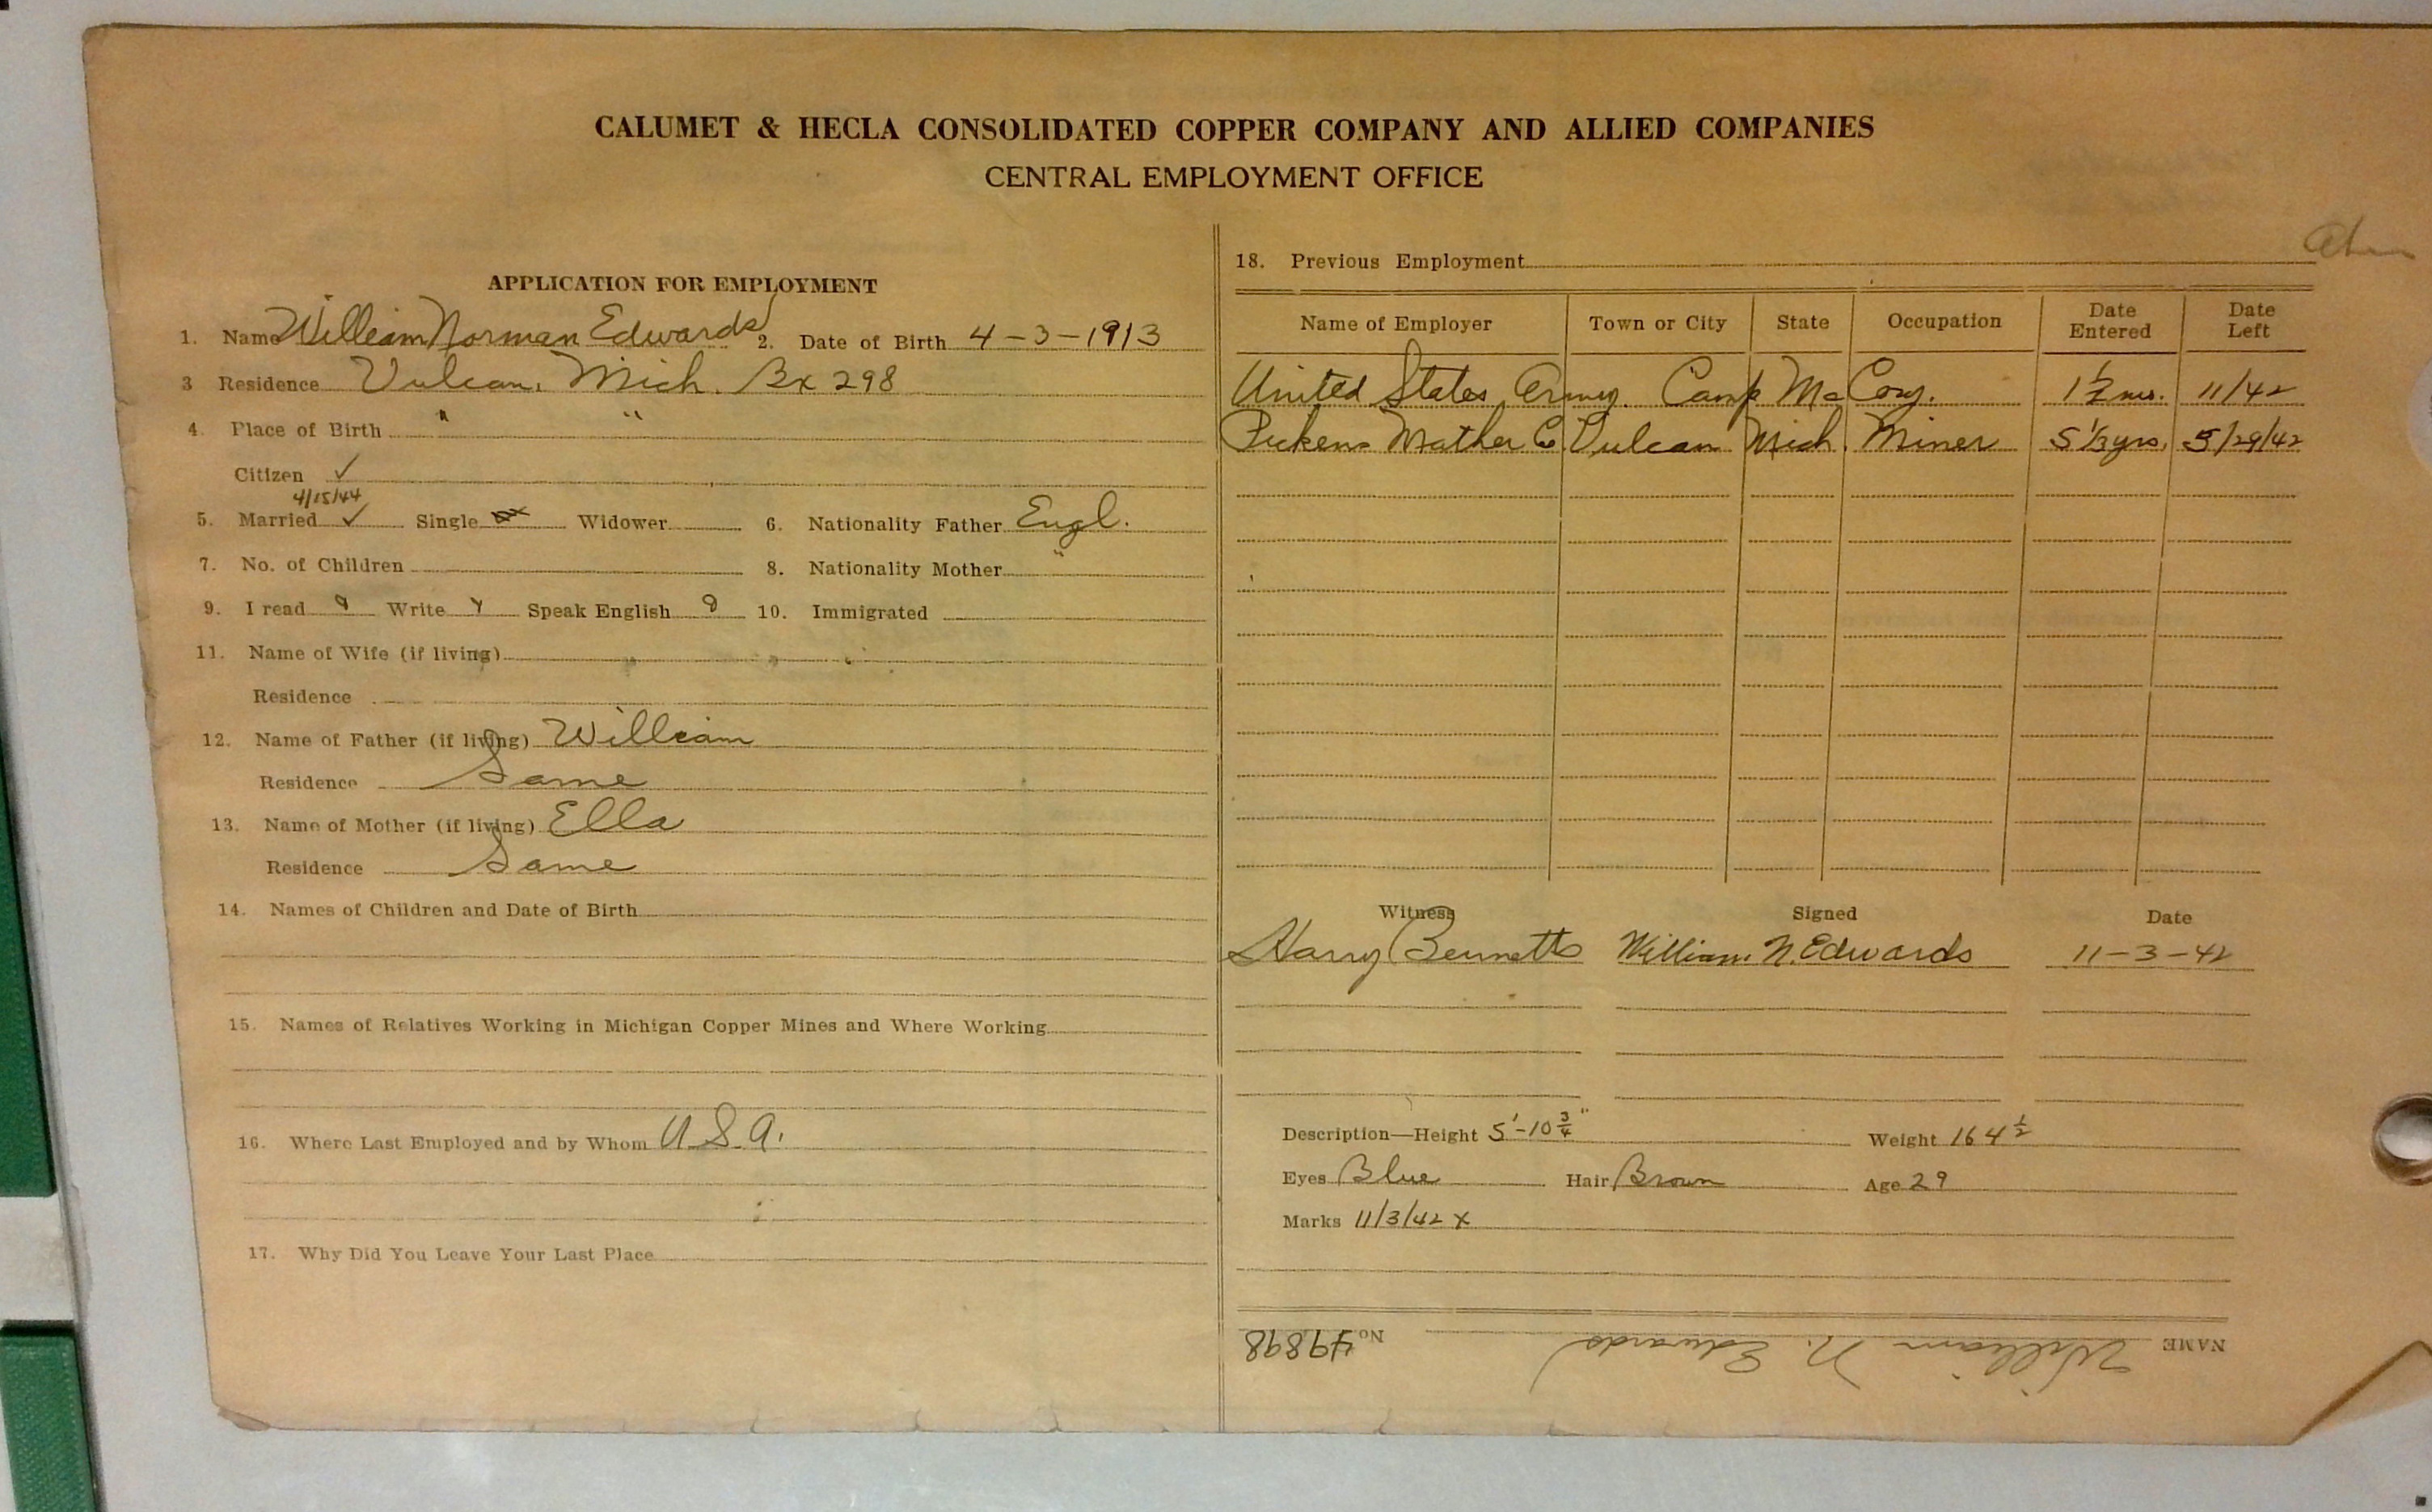 CALUMET & HECLA CONSOLIDATED COPPER COMPANY AND ALLIED COMPANIES
CENTRAL EMPLOYMENT OFFICE
APPLICATION FOR EMPLOYMENT
1. Name William Norman Edwards 2. Date of Birth 4-3-1913
3 Residence Vulcan, Mich. Bx 298
4. Place of Birth " "
Citizen ✓
4/15/44
5. Married ✓ Single Widower 6. Nationality Father Engl.
7. No. of Children 8. Nationality Mother "
9. I read y Write y Speak English y 10. Immigrated
11. Name of Wife (if living)
Residence
12. Name of Father (if living) William
Residence Same
13. Name of Mother (if living) Ella
Residence Same
14. Names of Children and Date of Birth
15. Names of Relatives Working in Michigan Copper Mines and Where Working
16. Where Last Employed and by Whom U.S.A.
17. Why Did You Leave Your Last Place
18. Previous Employment
Name of Employer Town or City State Occupation Date Entered Date Left
United States Army. Camp McCoy. 1 1/2 mo. 11/42
Pickens Mather Co Vulcan Mich. Miner 5 1/3 yrs. 5/29/42
Witness Signed Date
Harry Bennetts William N. Edwards 11-3-42
Description—Height 5'-10 3/4" Weight 164 1/2
Eyes Blue Hair Brown Age 29
Marks 11/3/42 X
NAME William N. Edwards No. 49898